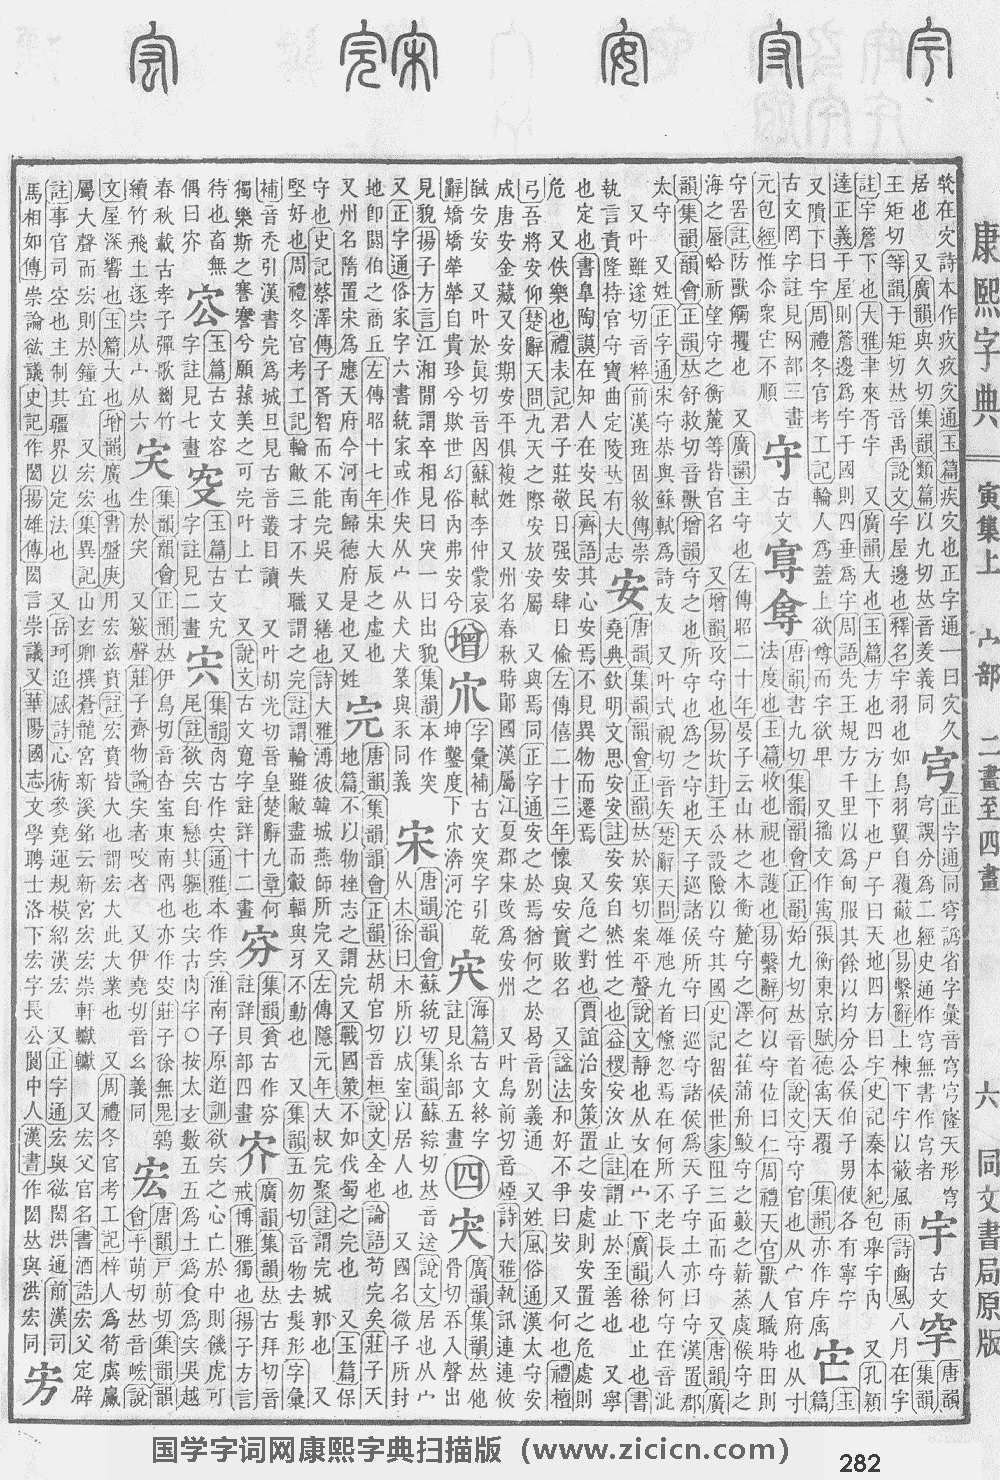 康熙字典
寅集上 宀部
二畫至四畫
六
同文書局原版
居也 又廣韻與久切集韻類篇以九切𠀤音羑義同
宆
正字通同穹譌省字彙音穹宆窿天形穹
宆誤分爲二經史通作穹無書作宆者
宇
古文
唐韻集韻
王矩切等韻于矩切𠀤音禹說文宇屋邊也釋名宇羽也如鳥羽翼自覆蔽也易繫辭上棟下宇以蔽風雨詩豳風八月在宇
註宇簷下也大雅聿來胥宇 又廣韻大也玉篇方也四方上下也尸子曰天地四方曰宇史記秦本紀包舉宇內 又孔穎
達正義于屋則簷邊爲宇于國則四垂爲宇周語先王規方千里以爲甸服其餘以均分公侯伯子男使各有寧宇
又隤下曰宇周禮冬官考工記輪人爲蓋上欲尊而宇欲卑 又籀文作㝢張衡東京賦德㝢天覆
玉篇
古文罔字註見网部三畫
守
古文
唐韻書九切集韻韻會正韻始九切𠀤音首說文守官也从宀
法度也玉篇收也視也護也易繫辭何以守位曰仁周禮天官獸人職時田則
守罟註防獸觸攫也 又廣韻主守也左傳昭二十年晏子云山林之木衡麓守之澤之萑蒲舟鮫守之藪之薪蒸虞候守之
海之蜃蛤祈望守之衡麓等皆官名 又增韻攻守也易坎卦王公設險以守其國史記留侯世家阻三面而守 又唐韻廣
韻集韻韻會正韻𠀤舒救切音獸增韻守之也所守也爲之守也天子巡諸侯所守曰巡守諸侯爲天子守土亦曰守漢置郡
太守 又姓正字通宋守恭與蘇軾爲詩友
執言責隆持官守寶曲定陵𠀤有大志
安
唐韻集韻韻會正韻𠀤於寒切案平聲說文靜也从女在宀下廣韻徐也止也書
堯典欽明文思安安註安安自然性之也益稷安汝止註謂止於至善也 又寧
也定也書臯陶謨在知人在安民齊語其心安焉不見異物而遷焉 又危之對也賈誼治安策置之安處則安置之危處則
危 又佚樂也禮表記君子莊敬日强安肆日偷左傳僖二十三年懷與安實敗名 又諡法和好不爭曰安 又何也禮檀
弓吾將安仰楚辭天問九天之際安放安屬 又與焉同正字通安之於焉猶何之於曷音別義通 又姓風俗通漢太守安
成唐安金藏又安期安平俱複姓 又州名春秋時鄖國漢屬江夏郡宋改爲安州 又叶烏前切音煙詩大雅執訊連連攸
馘安安 又叶於眞切音因蘇軾李仲蒙哀
辭矯矯犖犖自貴珍兮欺世幻俗內弗安兮
增
字彙補古文突字引乾
坤鑿度下
海篇古文終字
註見糸部五畫
四
廣韻集韻𠀤他
骨切吞入聲出
見貌揚子方言江湘閒謂卒相見曰突一曰出貌集韻本作突
又正字通俗家字六書統家或作
宋
唐韻會蘇統切集韻蘇綜切𠀤音送說文居也从宀
从木徐曰木所以成室以居人也 又國名微子所封
地卽閼伯之商丘左傳昭十七年宋大辰之虛也
又州名隋置宋爲應天府今河南歸德府是也又姓
完
唐韻集韻韻會正韻𠀤胡官切音桓說文全也論語苟完矣莊子天
地篇不以物挫志之謂完又戰國策不如伐蜀之完也 又玉篇保
守也史記蔡澤傳子胥智而不能完吳 又繕也詩大雅溥彼韓城燕師所完又左傳隱元年大叔完聚註謂完城郭也 又
堅好也周禮冬官考工記輪敝三才不失職謂之完註謂輪雖敝盡而轂輻與牙不動也
補音禿引漢書完爲城旦見古音叢目讀
獨樂斯之謇謇兮願蓀美之可完叶上亡 又說文古文寬字註詳十二畫
集韻貧古作㝏
註詳貝部四畫
廣韻集韻𠀤古拜切音
戒博雅獨也揚子方言
玉篇古文容
字註見七畫
玉篇古文
字註見二畫
集韻肉古作宍
淮南子原道訓欲宍之心亡於中則饑虎可
尾註欲宍自戀其軀也宍古肉字○按太玄數五五爲土爲食爲宍吳越
春秋載古孝子彈歌斷竹
續竹飛土逐宍从宀从六
集韻韻會正韻𠀤伊鳥切音杳室東南隅也亦作
聲莊子齊物論宎者咬者 又伊堯切音幺義同
宏
唐韻戸萌切集韻
韻會乎萌切𠀤音嶸說
文屋深響也玉篇大也增韻廣也書盤庚用宏茲賁註宏賁皆大也謂宏大此大業也 又周禮冬官考工記梓人爲筍虡臝
屬大聲而宏則於鐘宜 又宏宏集異記山玄卿撰蒼龍宮新溪銘云新宮宏宏崇軒轍轍 又宏父官名書酒誥宏父定辟
註事官司空也主制其疆界以定法也 又岳珂追感詩心術參堯運規模紹漢宏 又正字通宏與䇯閎洪通前漢司
馬相如傳崇論䇯議史記作閎揚雄傳閎言崇議又華陽國志文學聘士洛下宏字長公閬中人漢書作閎𠀤與洪宏同
国学字词网康熙字典扫描版（www.zicicn.com）
282